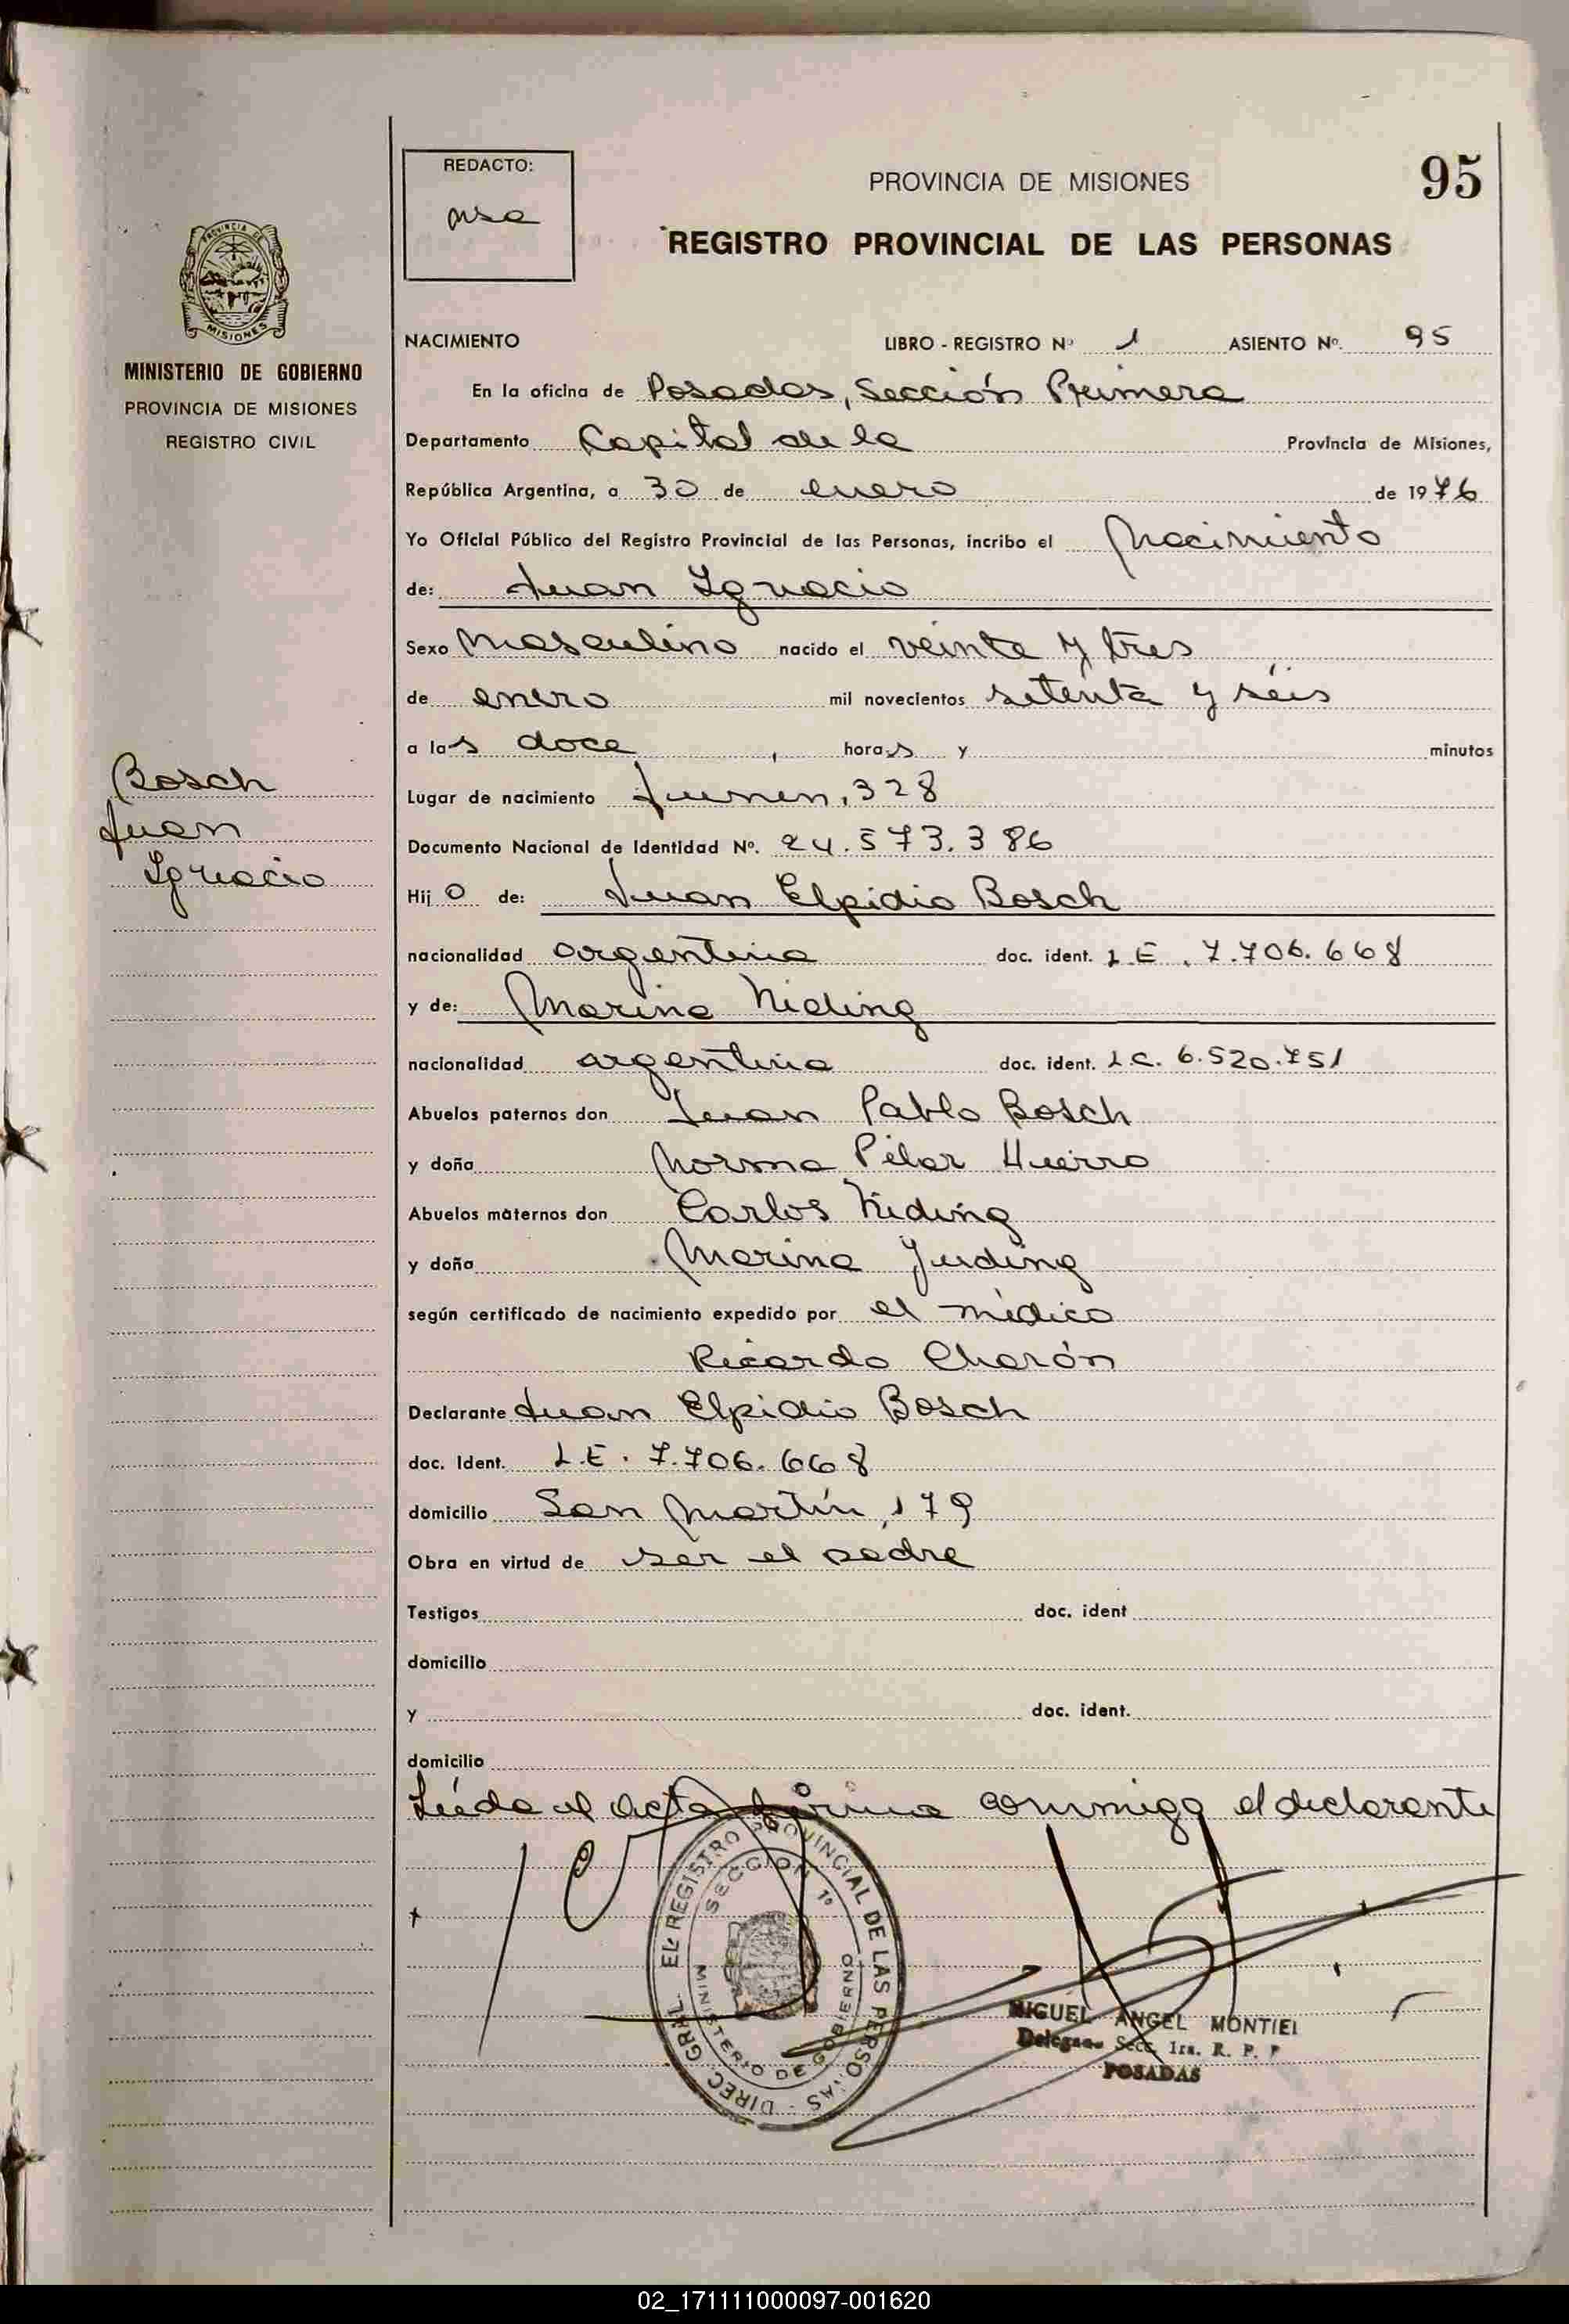 REDACTO:
PROVINCIA DE MISIONES
95
REGISTRO PROVINCIAL DE LAS PERSONAS
PROVINCIA DE
MISIONES
MINISTERIO DE GOBIERNO
PROVINCIA DE MISIONES
REGISTRO CIVIL
NACIMIENTO LIBRO - REGISTRO Nº 1 ASIENTO Nº. 95
En la oficina de Posadas, Sección Primera
Departamento Capital de la Provincia de Misiones,
República Argentina, a 30 de enero de 1976
Yo Oficial Público del Registro Provincial de las Personas, incribo el Nacimiento
de: Juan Ignacio
Sexo Masculino nacido el veinte y tres
de enero mil novecientos setenta y seis
a las doce, horas y minutos
Bosch
Juan
Ignacio
Lugar de nacimiento Junin, 328
Documento Nacional de Identidad Nº. 24.573.386
Hij o de: Juan Elpidio Bosch
nacionalidad argentina doc. ident. L.E. 7.706.668
y de: Marina Niding
nacionalidad argentina doc. ident. L.C. 6.520.751
Abuelos paternos don Juan Pablo Bosch
y doña Norma Pilar Huerro
Abuelos maternos don Carlos Niding
y doña Marina
según certificado de nacimiento expedido por el médico
Ricardo Charón
Declarante Juan Elpidio Bosch
doc. Ident. L.E. 7.706.668
domicilio San Martín, 179
Obra en virtud de ser el padre
Testigos doc. ident
domicilio
y doc. ident.
domicilio
Leída el Acta firma conmigo el declarante
DIREC. GRAL. EL REGISTRO PROVINCIAL DE LAS PERSONAS
SECCION 1º
MINISTERIO DE GOBIERNO
MIGUEL ANGEL MONTIEL
Delegado Secc. 1ra. R. P. P
POSADAS
02_171111000097-001620